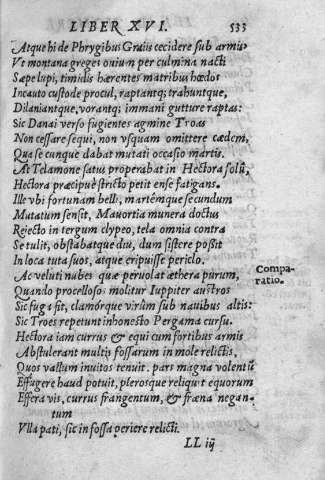 LIBER XVI. 535
Atque hi de Phrygibus Graiis cecidere sub armis
Vt montana greges ouium per culmina nacti
Sæpe lupi, timidis hærentes matribus hœdos
Incauto custode procul, raptantq; trahuntque,
Dilaniantque, vorantq; immani gutture raptas:
Sic Danai verso fugientes agmine Troas
Non cessare sequi, non vsquam omittere cædem,
Qua se cunque dabat mutati occasio martis.
At Telamone satus properabat in Hectora solũ,
Hectora præcipuè stricto petit ense fatigans.
Ille vbi fortunam belli, martémque secundum
Mutatum sensit, Mauortia munera doctus
Reiecto in tergum clypeo, tela omnia contra
Se tulit, obstabatque diu, dum sistere possit
In loca tuta suos, atque eripuisse periclo.
Ac veluti nubes quæ peruolat æthera purum,
Quando procellosos molitur Iuppiter austros
Sic fuga fit, clamórque virûm sub nauibus altis:
Sic Troes repetunt inhonesto Pergama cursu.
Hectora iam currus & equi cum fortibus armis
Abstulerant multis fossarum in mole relictis,
Quos vallum inuitos tenuit. pars magna volentũ
Effugere haud potuit, plerosque reliquit equorum
Effera vis, currus frangentum, & fræna negan-
tum
Vlla pati, sic in fossa periere relicti.
LL iij
Compa-
ratio.